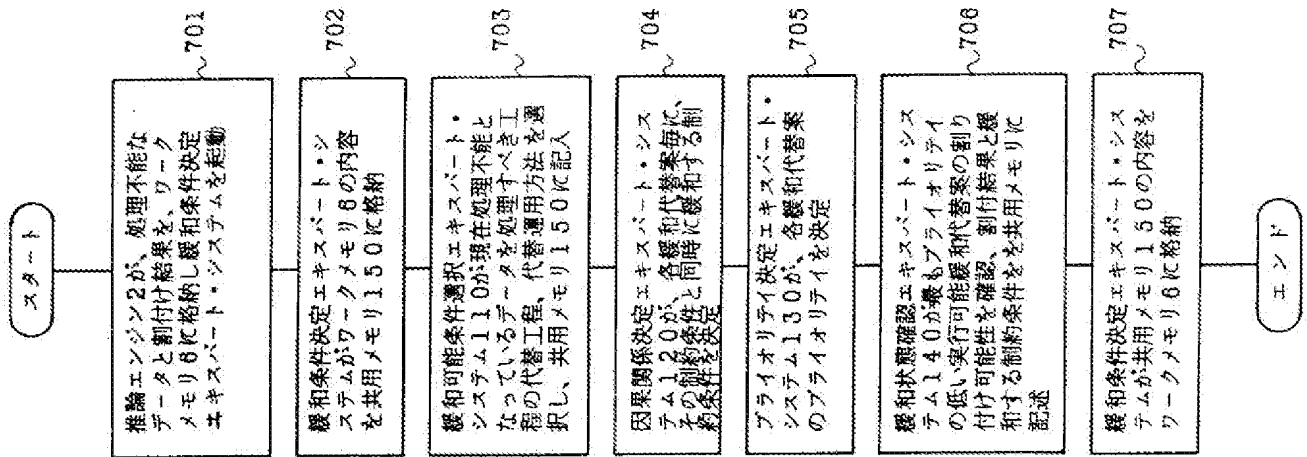 スタート
701
推論エンジン2が、処理不能な
データと割付け結果を、ワーク
メモリ6に格納し緩和条件決定
エキスパート・システムを起動
702
緩和条件決定エキスパート・シ
ステムがワークメモリ6の内容
を共用メモリ150に格納
703
緩和可能条件選択エキスパート・
システム110が現在処理不能と
なっているデータを処理すべき工
程の代替工程、代替運用方法を選
択し、共用メモリ150に記入
704
因果関係決定エキスパート・シス
テム120が、各緩和代替案毎に、
その制約条件と同時に緩和する制
約条件を決定
705
プライオリティ決定エキスパート・
システム130が、各緩和代替案
のプライオリティを決定
706
緩和状態確認エキスパート・シス
テム140が最もプライオリティ
の低い実行可能緩和代替案の割り
付け可能性を確認、割付結果と緩
和する制約条件をを共用メモリに
記述
707
緩和条件決定エキスパート・シス
テムが共用メモリ150の内容を
ワークメモリ6に格納
エンド